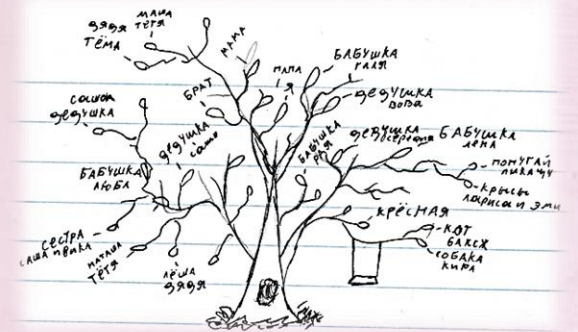 МАША
ТЁТЯ
ДЯДЯ
ТЁМА
МАМА
ПАПА
Я
БРАТ
БАБУШКА
ГАЛЯ
ДЕДУШКА
ВОВА
САШОК
ДЕДУШКА
ДЕДУШКА
САШО
БАБУШКА
РАЯ
ДЕДУШКА
БАБУШКА
ЛЕНА
БАБУШКА
ЛЮБА
ПОПУГАЙ
ПИКАЧУ
КРЫСЫ
ЛАРИСА И ЭМИ
КРЁСНАЯ
КОТ
БАКСЖ
СОБАКА
КИРА
СЕСТРА
САША
НАТАША
ТЁТЯ
ЛЁША
ДЯДЯ